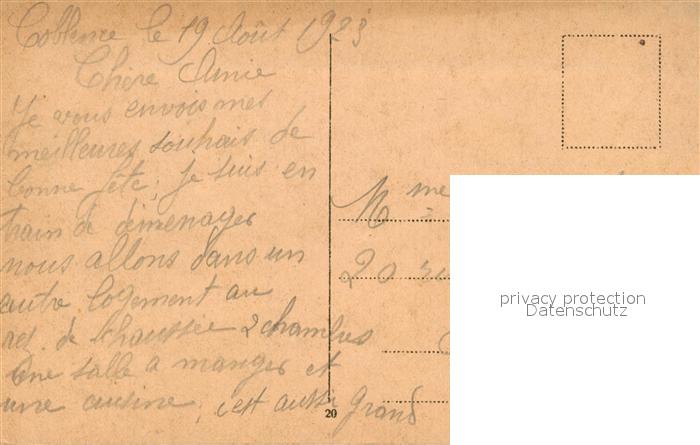 Coblence le 19 Août 1923
Chère Amie
Je vous envois mes
meilleures souhais de
bonne fête, je suis en
train de déménager
nous allons dans un
autre logement au
rez. de chaussée 2 chambres
une salle a manger et
une cuisine, c'est aussi grand
Mme
20 ru
privacy protection
Datenschutz
20